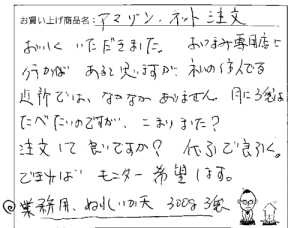 お買い上げ商品名：アマゾン.ネット注文
おいしくいただきました。おつまみ専用店に
行かば あると思いますが、私の住んでる
近所では、なかなかありません。月に3袋は
たべたいのですが、こまりました？
注文して良いですか？ 代ふで良ろく。
できれば モニター希望します。
◎業務用、ぬれいか天 300g 3袋